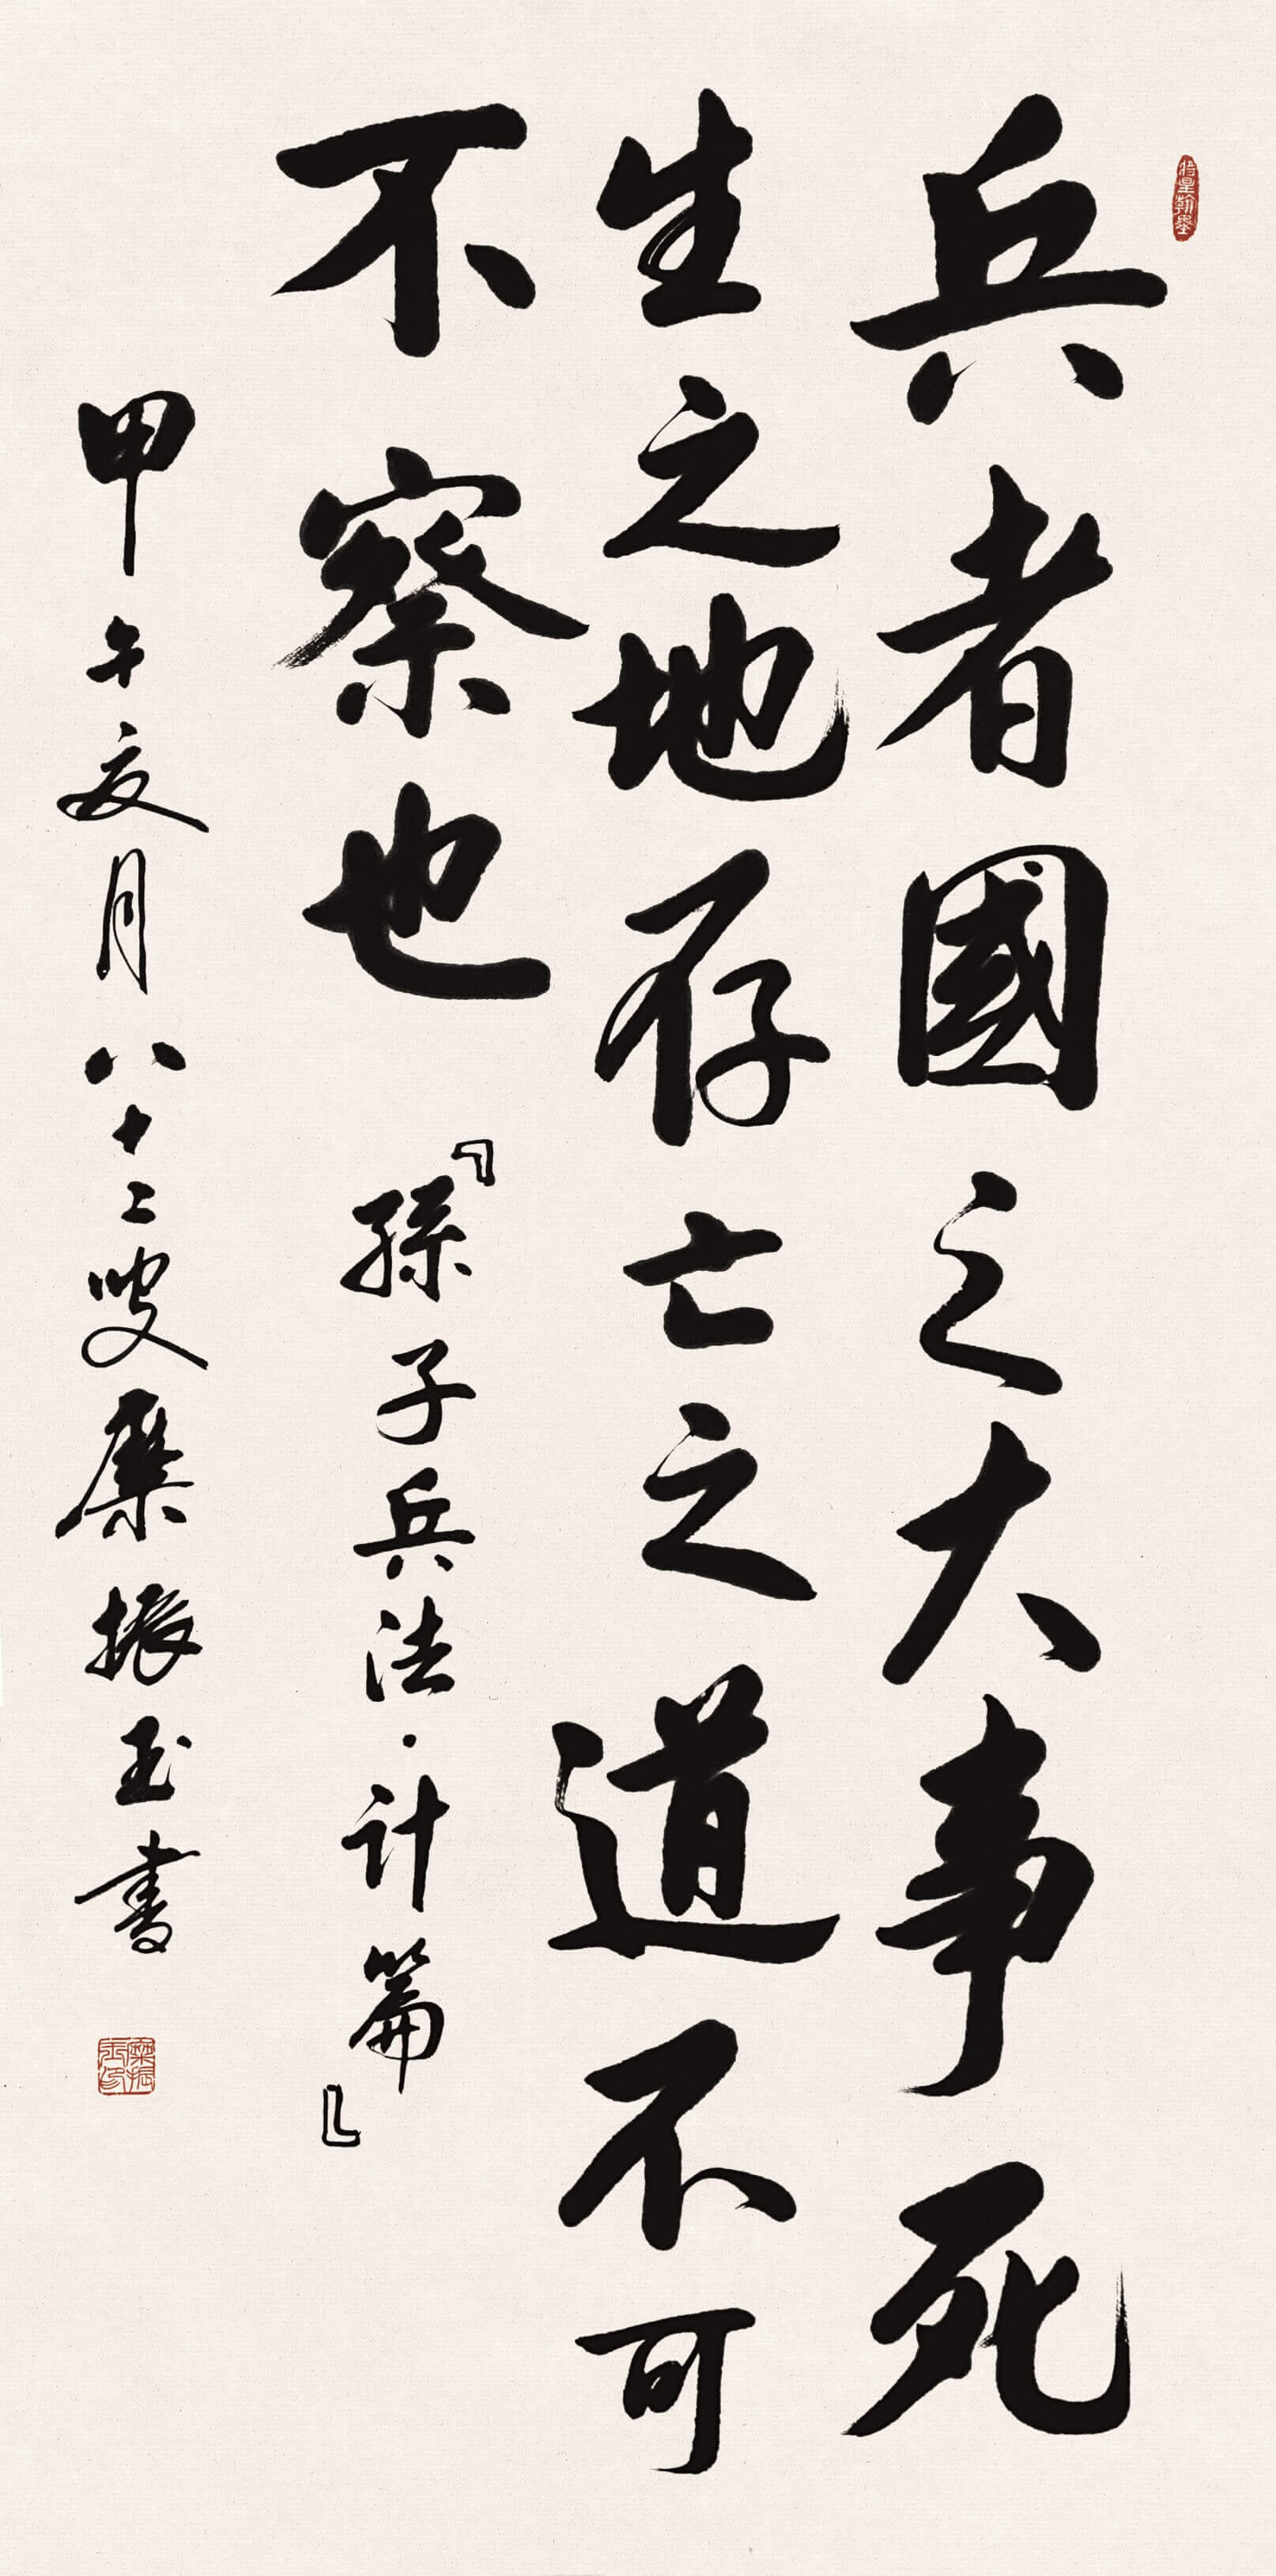 兵者國之大事死
生之地存亡之道不可
不察也
『孫子兵法·计篇』
甲午夏月八十二叟糜振玉書
将星翰墨
糜振玉印